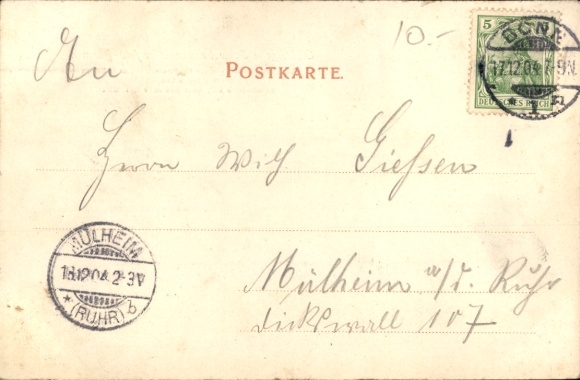 10.-
5
BONN
17.12.04.7-8N.
* 1 n
DEUTSCHES REICH
An
POSTKARTE.
Herrn Wilh Giessen
MÜLHEIM
18.12.04.2-3V
* (RUHR) b
Mülheim a/d. Ruhr
Dickswall 107